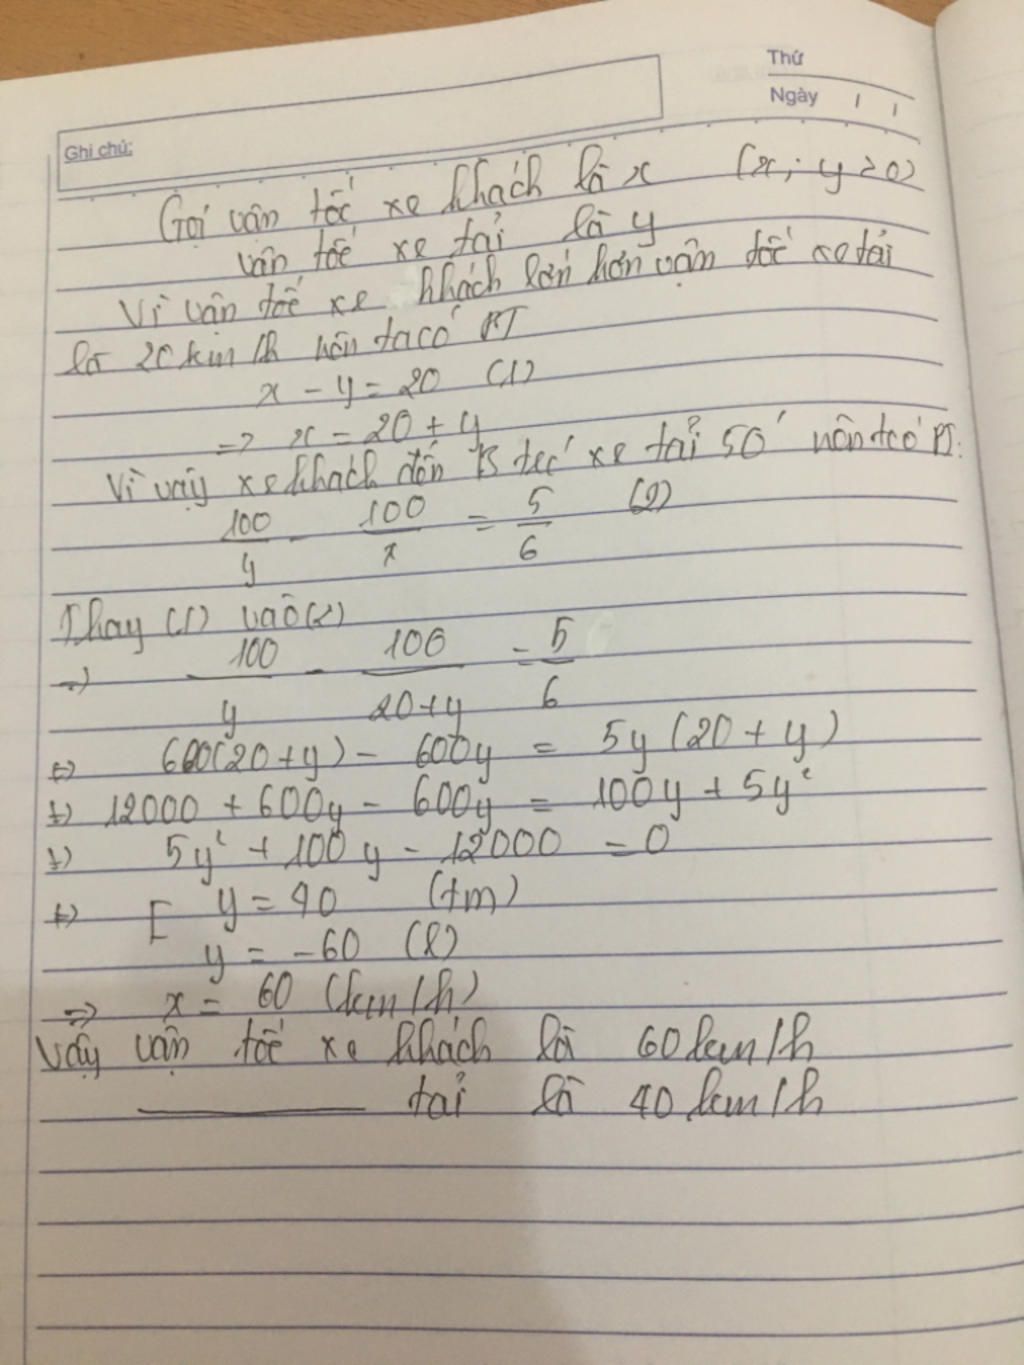 Thứ
Ngày
Ghi chú:
Gọi vận tốc xe khách là x (x; y > 0)
vận tốc xe tải là y
Vì vận tốc xe khách lớn hơn vận tốc xe tải
là 20 km/h nên ta có PT
x - y = 20 (1)
=> x = 20 + y
Vì vậy xe khách đến B trước xe tải 50' nên ta có PT:
100/y - 100/x = 5/6 (2)
Thay (1) vào (2)
=> 100/y - 100/20+y = 5/6
<=> 600(20+y) - 600y = 5y(20+y)
<=> 12000 + 600y - 600y = 100y + 5y²
<=> 5y² + 100y - 12000 = 0
<=> [ y = 40 (tm)
y = -60 (l)
=> x = 60 (km/h)
Vậy vận tốc xe khách là 60 km/h
tải là 40 km/h